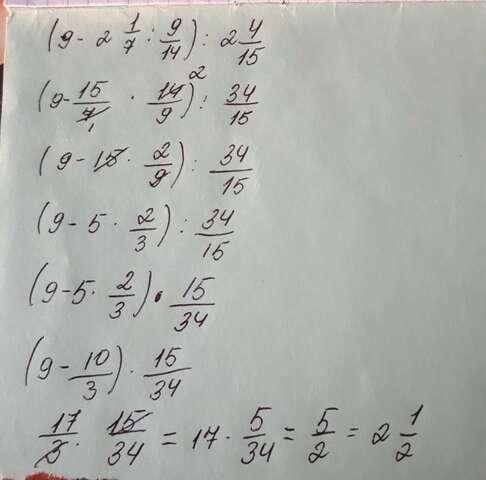 (9 - 2 1/7 : 9/14) : 2 4/15
(9 - 15/7 1 · 14/9 2) : 34/15
(9 - 15 · 2/9) : 34/15
(9 - 5 · 2/3) : 34/15
(9 - 5 · 2/3) · 15/34
(9 - 10/3) · 15/34
17/3 · 15/34 = 17 · 5/34 = 5/2 = 2 1/2